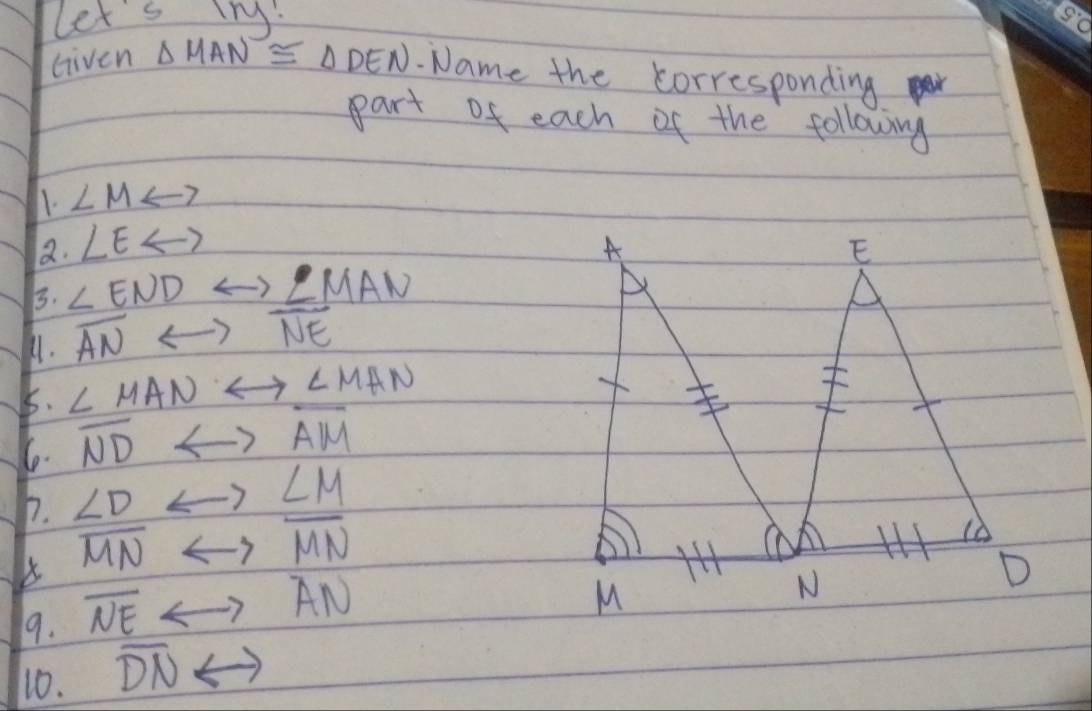 Let's Try!
Given Δ MAN ≅ Δ DEN. Name the corresponding
part of each of the following
1. ∠M ↔
2. ∠E ↔
3. ∠END ↔ ∠MAN
4. A̅N̅ ↔ N̅E̅
5. ∠MAN ↔ ∠MAN
6. N̅D̅ ↔ A̅M̅
7. ∠D ↔ ∠M
8. M̅N̅ ↔ M̅N̅
9. N̅E̅ ↔ A̅N̅
10. D̅N̅ ↔
A E
M N D
0.5